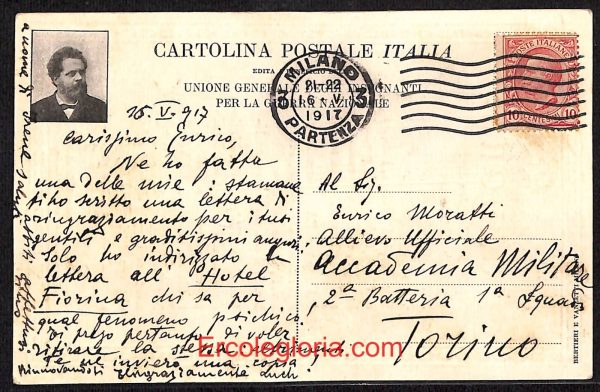 CARTOLINA POSTALE ITALIA
EDITA
UNIONE GENERALE DEGLI INSEGNANTI
PER LA GUERRA NAZIONALE
MILANO
PARTENZA
21-22
6 V
1917
3 3
POSTE ITALIANE
10 CENTES. 10
15. V. 917
Carissimo Enrico,
Ne ho fatta
una delle mie: stamane
ti ho scritto una lettera di
ringraziamento per i tuoi
gentili e graditissimi auguri.
Solo ho indirizzato la
lettera all' Hotel
Fiorina chi sa per
qual fenomeno psichico.
Ti prego pertanto di voler
ritirare la stessa
Te ne invierò una copia
rinnovanditi ringraziamenti
a nome di
Al Sig.
Enrico Moratti
Allievo Ufficiale
Accademia Militare
2ª Batteria 1ª Squad
Torino
BERTIERI E VANZETTI
Ercolegloria.com